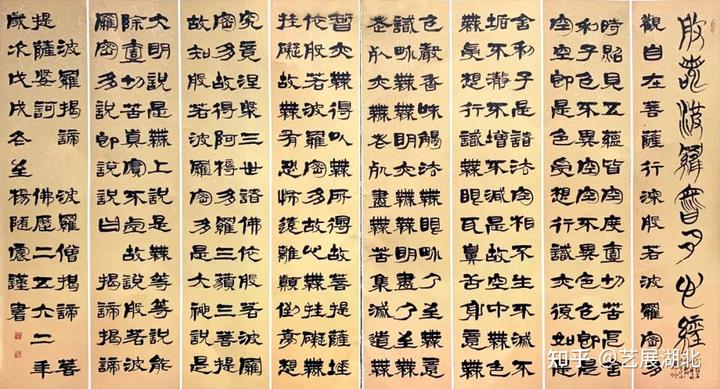 般若波羅密多心經
觀自在菩薩行深般若波羅密多
時照見五蘊皆空度壹切苦厄舍
利子色不異空空不異色色即是
空空即是色受想行識亦復如是
舍利子是諸法空相不生不滅不
垢不淨不增不減是故空中無色
無受想行識無眼耳鼻舌身意無
色聲香味觸法無眼界乃至無意
識界無無明亦無無明盡乃至無
老死亦無老死盡無苦集滅道無
智亦無得以無所得故菩提薩埵
依般若波羅密多故心無罣礙無
罣礙故無有恐怖遠離顛倒夢想
究竟涅槃三世諸佛依般若波羅
密多故得阿耨多羅三藐三菩提
故知般若波羅密多是大神咒是
大明咒是無上咒是無等等咒能
除壹切苦真實不虛故說般若波
羅密多咒即說咒曰 揭諦揭諦
波羅揭諦 波羅僧揭諦 菩
提薩婆訶 佛歷二五六二年
歲次戊戌冬至楊隨震謹書
知乎 @艺展湖北